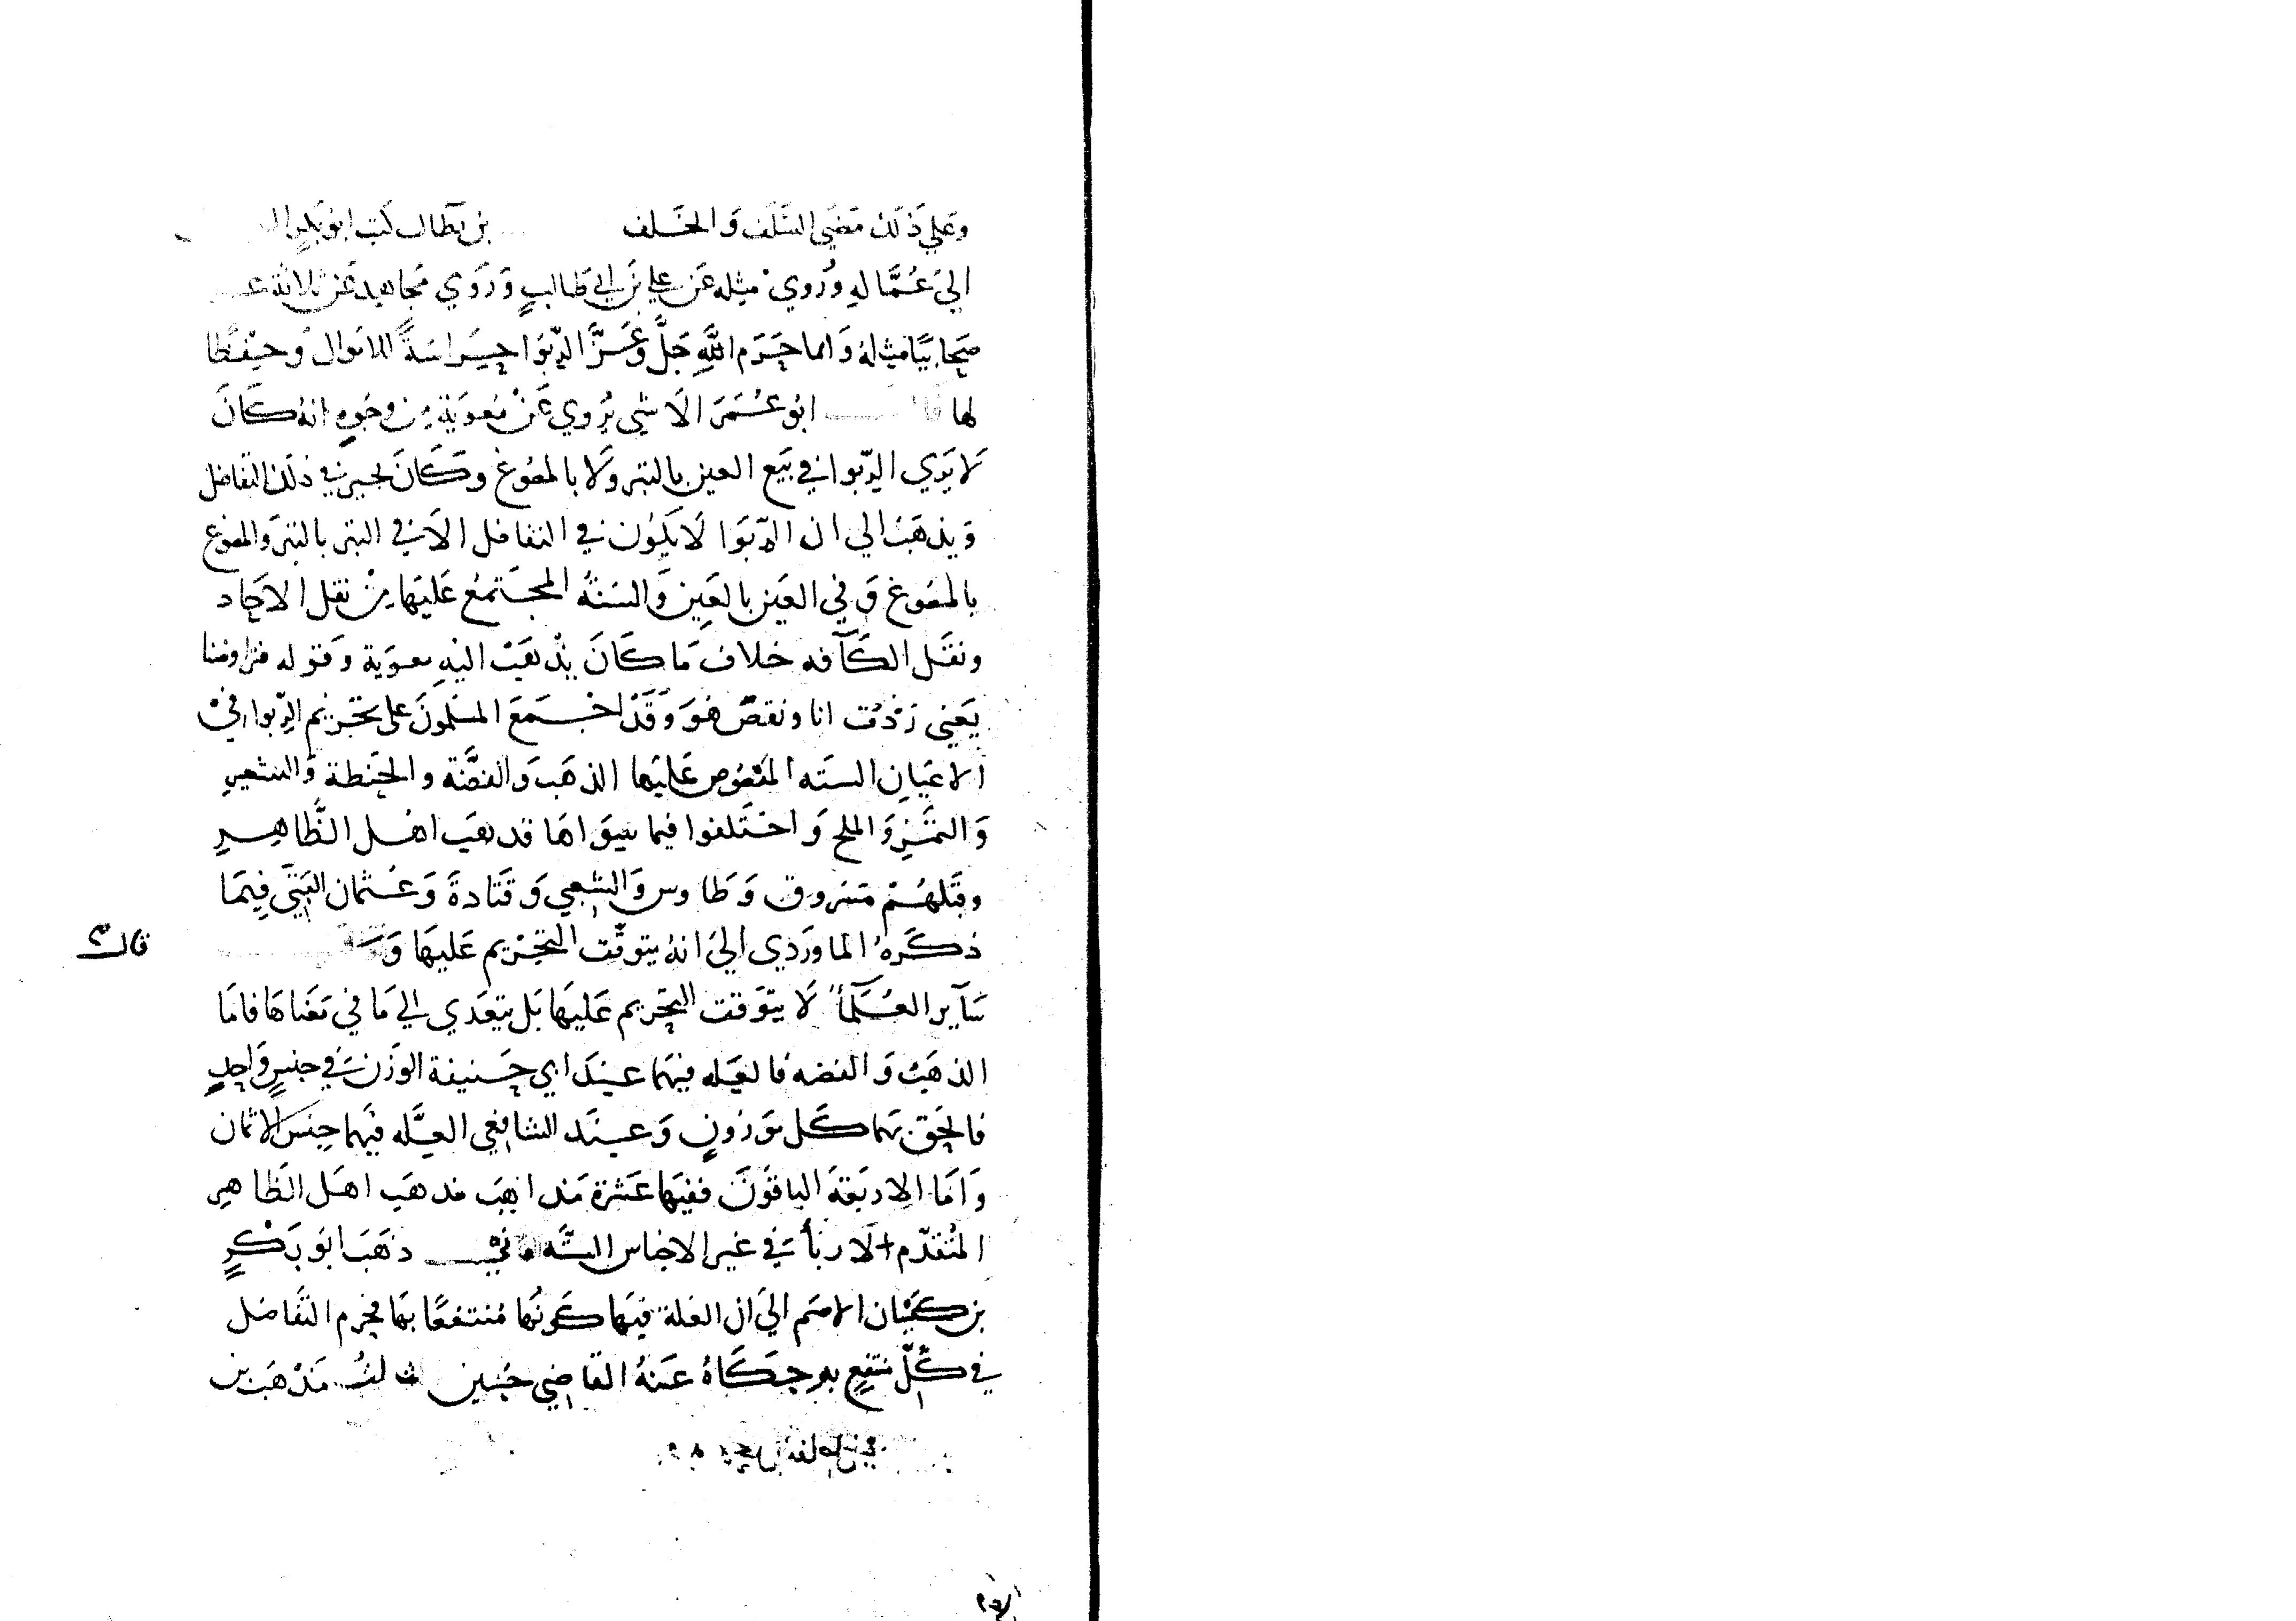 وعلي ذلك مضي السلف والخلف بن بطال كتب ابو بكر
الي عماله وروي مثله عن علي بن ابي طالب وروي مجاهد عن ثلاثة عشر
صحابيا مثله وانما حرم الله جل وعز الربوا حراسة للاموال وحفظا
لها قال ابو عمر الا شي يروي عن معوية من وجوه انه كان
لا يري الربوا في بيع العين بالتبر ولا بالمصوغ وكان يجيز في ذلك التفاضل
ويذهب الي ان الربوا لا يكون في التفاضل الا في التبر بالتبر والمصوغ
بالمصوغ وفي العين بالعين والسنة المجتمع عليها من نقل الاحاد
ونقل الكآفه خلاف ما كان يذهب اليه معوية وقوله فتراوضنا
يعني زدت انا ونقص هو وقد اجمع المسلمون على تحريم الربوا في
الاعيان السته المنصوص عليها الذهب والفضة والحنطة والشعير
والتمر والملح واختلفوا فيما سواها فذهب اهل الظاهر
وقبلهم مسروق وطاوس والشعبي وقتادة وعثمان البتي فيما
ذكره الماوردي الي انه يتوقف التحريم عليها و
قال
سآير العلمآ لا يتوقف التحريم عليها بل يتعدي الي ما في معناها فاما
الذهب والفضه فالعله فيهما عند ابي حنيفة الوزن في جنس واحد
فالحق بهما كل موزون وعند الشافعي العله فيهما جنس الاثمان
واما الاربعة الباقون ففيها عشرة مذاهب مذهب اهل الظاهر
المتقدم لا ربا في غير الاجناس السته ثاني ذهب ابو بكر
بن كيسان الاصم الي ان العلة فيها كونها منتفعا بها فيحرم التفاضل
في كل منتفع به حكاه عنه القاضي حسين ثالث مذهب بن